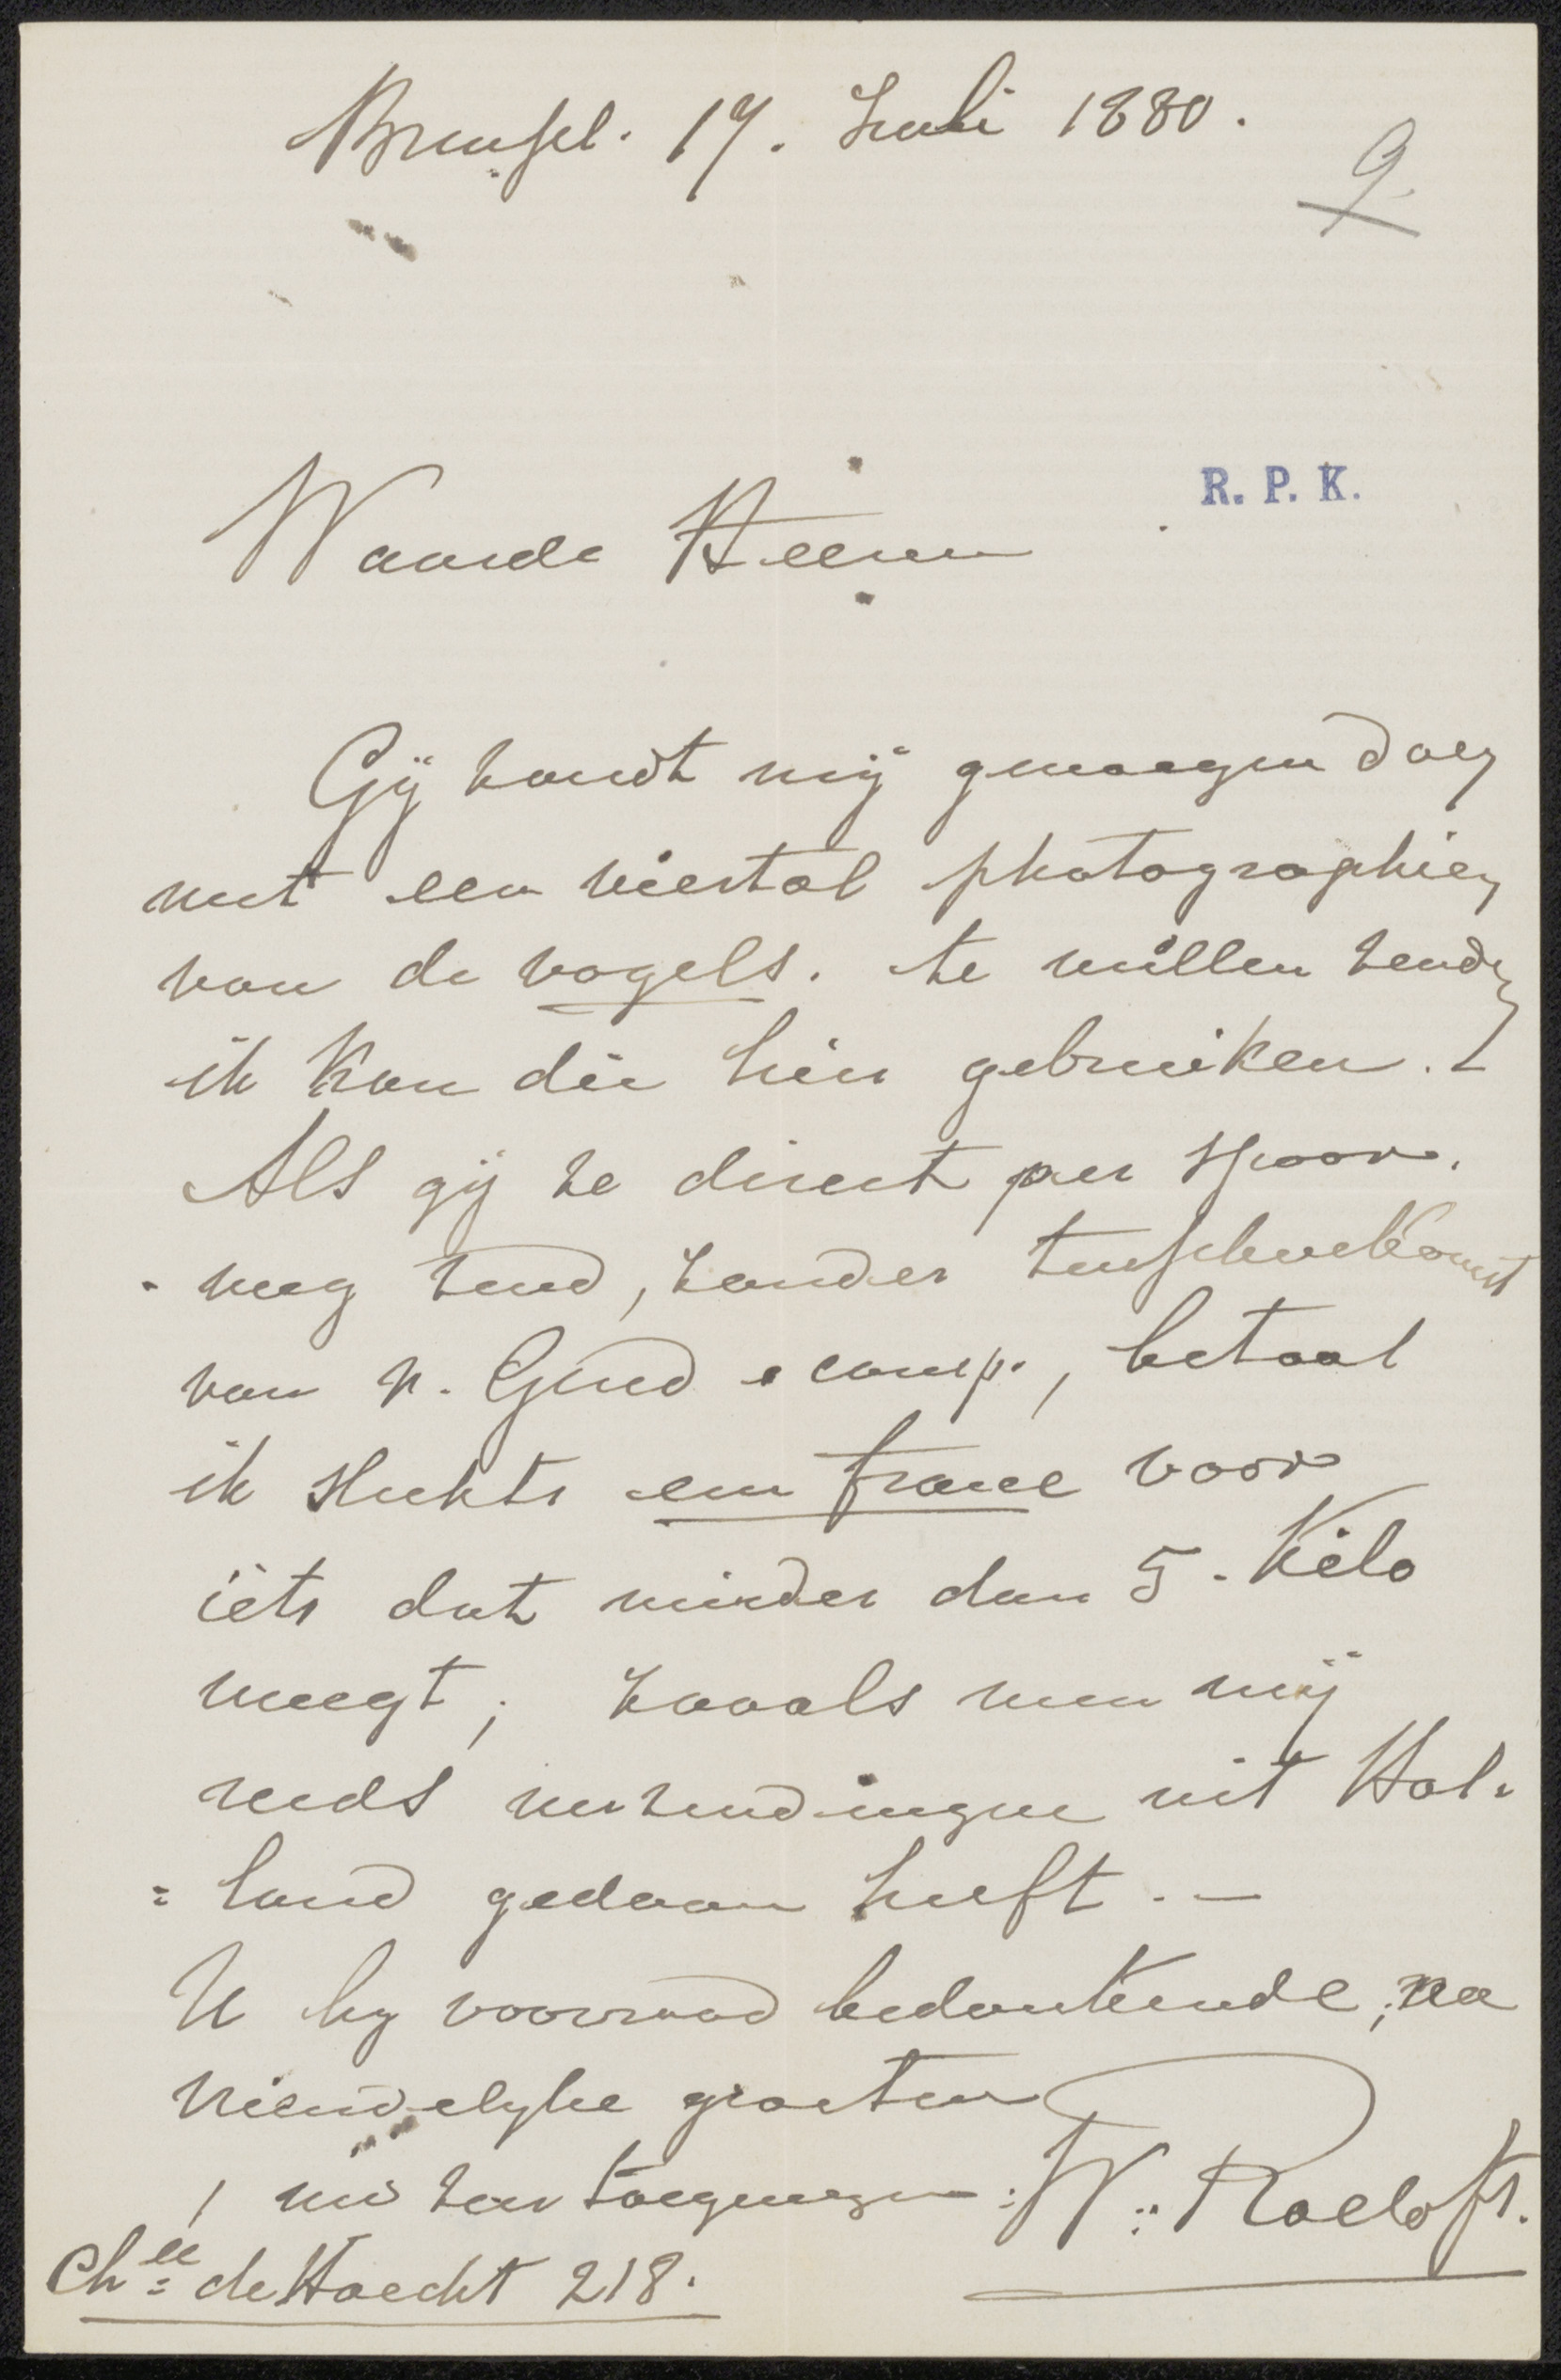 Brussel. 17. Juli 1880.
9.
R. P. K.
Waarde Heeren
Gij zoudt mij genoegen doen
met een viertal photographien
van de vogels. te willen zenden
ik kan die hier gebruiken. –
Als gij ze direct per spoor.
- weg zend, zonder tusschenkomst
van v. Gend & comp., betaal
ik slechts een franc voor
iets dat minder dan 5. Kilo
weegt; zooals men mij
reeds verzendingen uit Hol-
= land gedaan heeft. –
U by voorraad bedankende, na
vriendelyke groeten
uw zeer toegenegen: W: Roelofs.
Chee de Haecht 218.